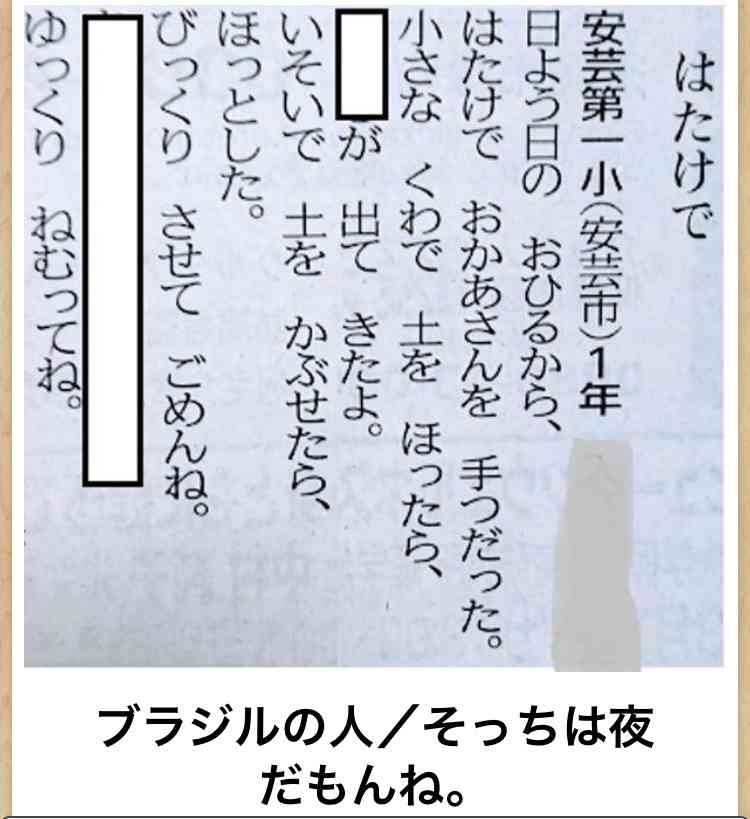 はたけで
安芸第一小（安芸市）1年
日よう日の　おひるから、
はたけで　おかあさんを　手つだった。
小さな　くわで　土を　ほったら、
が　出て　きたよ。
いそいで　土を　かぶせたら、
ほっとした。
びっくり　させて　ごめんね。
ゆっくり　ねむってね。
ブラジルの人／そっちは夜
だもんね。